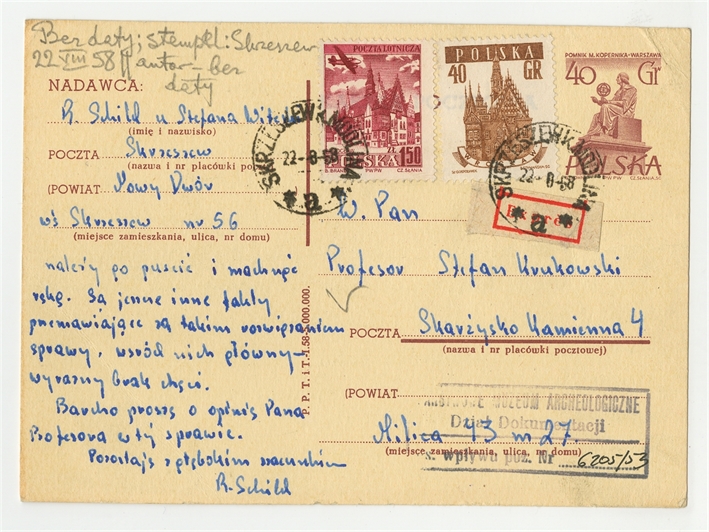 Bez daty; stempel: Skrzeszew
22 VIII 58 || autor - bez
daty
NADAWCA:
R. Schild u Stefana
(imię i nazwisko)
POCZTA Skrzeszew
(nazwa i nr placówki
(POWIAT Nowy Dwór
wś Skrzeszew nr 56
(miejsce zamieszkania, ulica, nr domu)
należy po puścić i machnąć
ręką. Są jeszcze inne fakty
przemawiające za takim rozwiązaniem
sprawy, wśród nich główny-
wyraźny brak chęci.
Bardzo proszę o opinię Pana
Profesora w tej sprawie.
Pozostaję z głębokim szacunkiem
R. Schild
POCZTA LOTNICZA
ZŁ
POLSKA 1.50
PWPW CZ. SŁANIA
POLSKA
40 GR
PWPW
POMNIK M. KOPERNIKA-WARSZAWA
40 Gr
POLSKA
PWPW CZ. SŁANIA
SKRZESZEW K. MODLINA
22-8-58
* a *
SKRZESZEW K. MODLINA
22-8-58
* a *
Expres
W. Pan
Profesor Stefan Krukowski
POCZTA Skarżysko Kamienna 4
(nazwa i nr placówki pocztowej)
(POWIAT
PAŃSTWOWE MUZEUM ARCHEOLOGICZNE
Dział Dokumentacji
Milica 43 m 27.
(miejsce zamieszkania, ulica, nr domu)
s. wpływu poz. Nr 6205/53
P. P. T. i T.